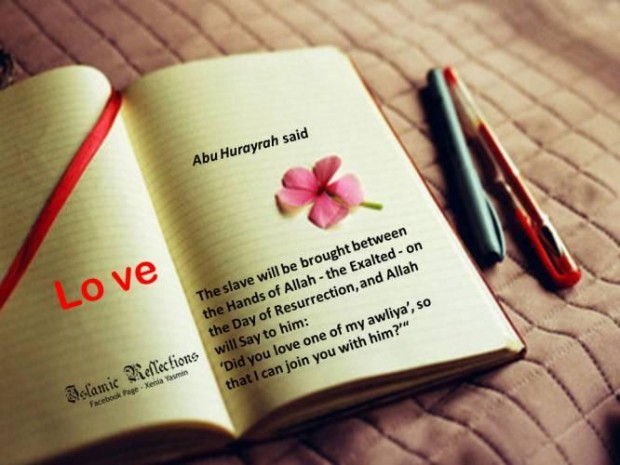 Love
Islamic Reflections
Facebook Page - Xenia Yasmin
Abu Hurayrah said
The slave will be brought between
the Hands of Allah - the Exalted - on
the Day of Resurrection, and Allah
will Say to him:
‘Did you love one of my awliya’, so
that I can join you with him?’“